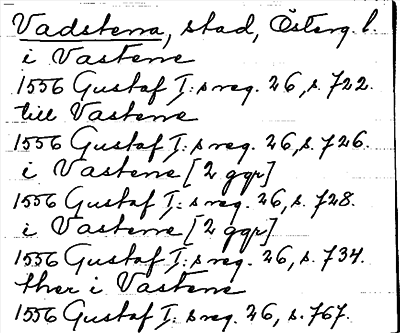 Vadstena, stad, Österg. l.
i Vastene
1556 Gustaf I:s reg. 26, s. 722.
till Vastene
1556 Gustaf I:s reg. 26, s. 726.
i Vastene [2 ggr]
1556 Gustaf I:s reg. 26, s. 728.
i Vastene [2 ggr]
1556 Gustaf I:s reg. 26, s. 734.
ther i Vastene
1556 Gustaf I:s reg. 26, s. 767.